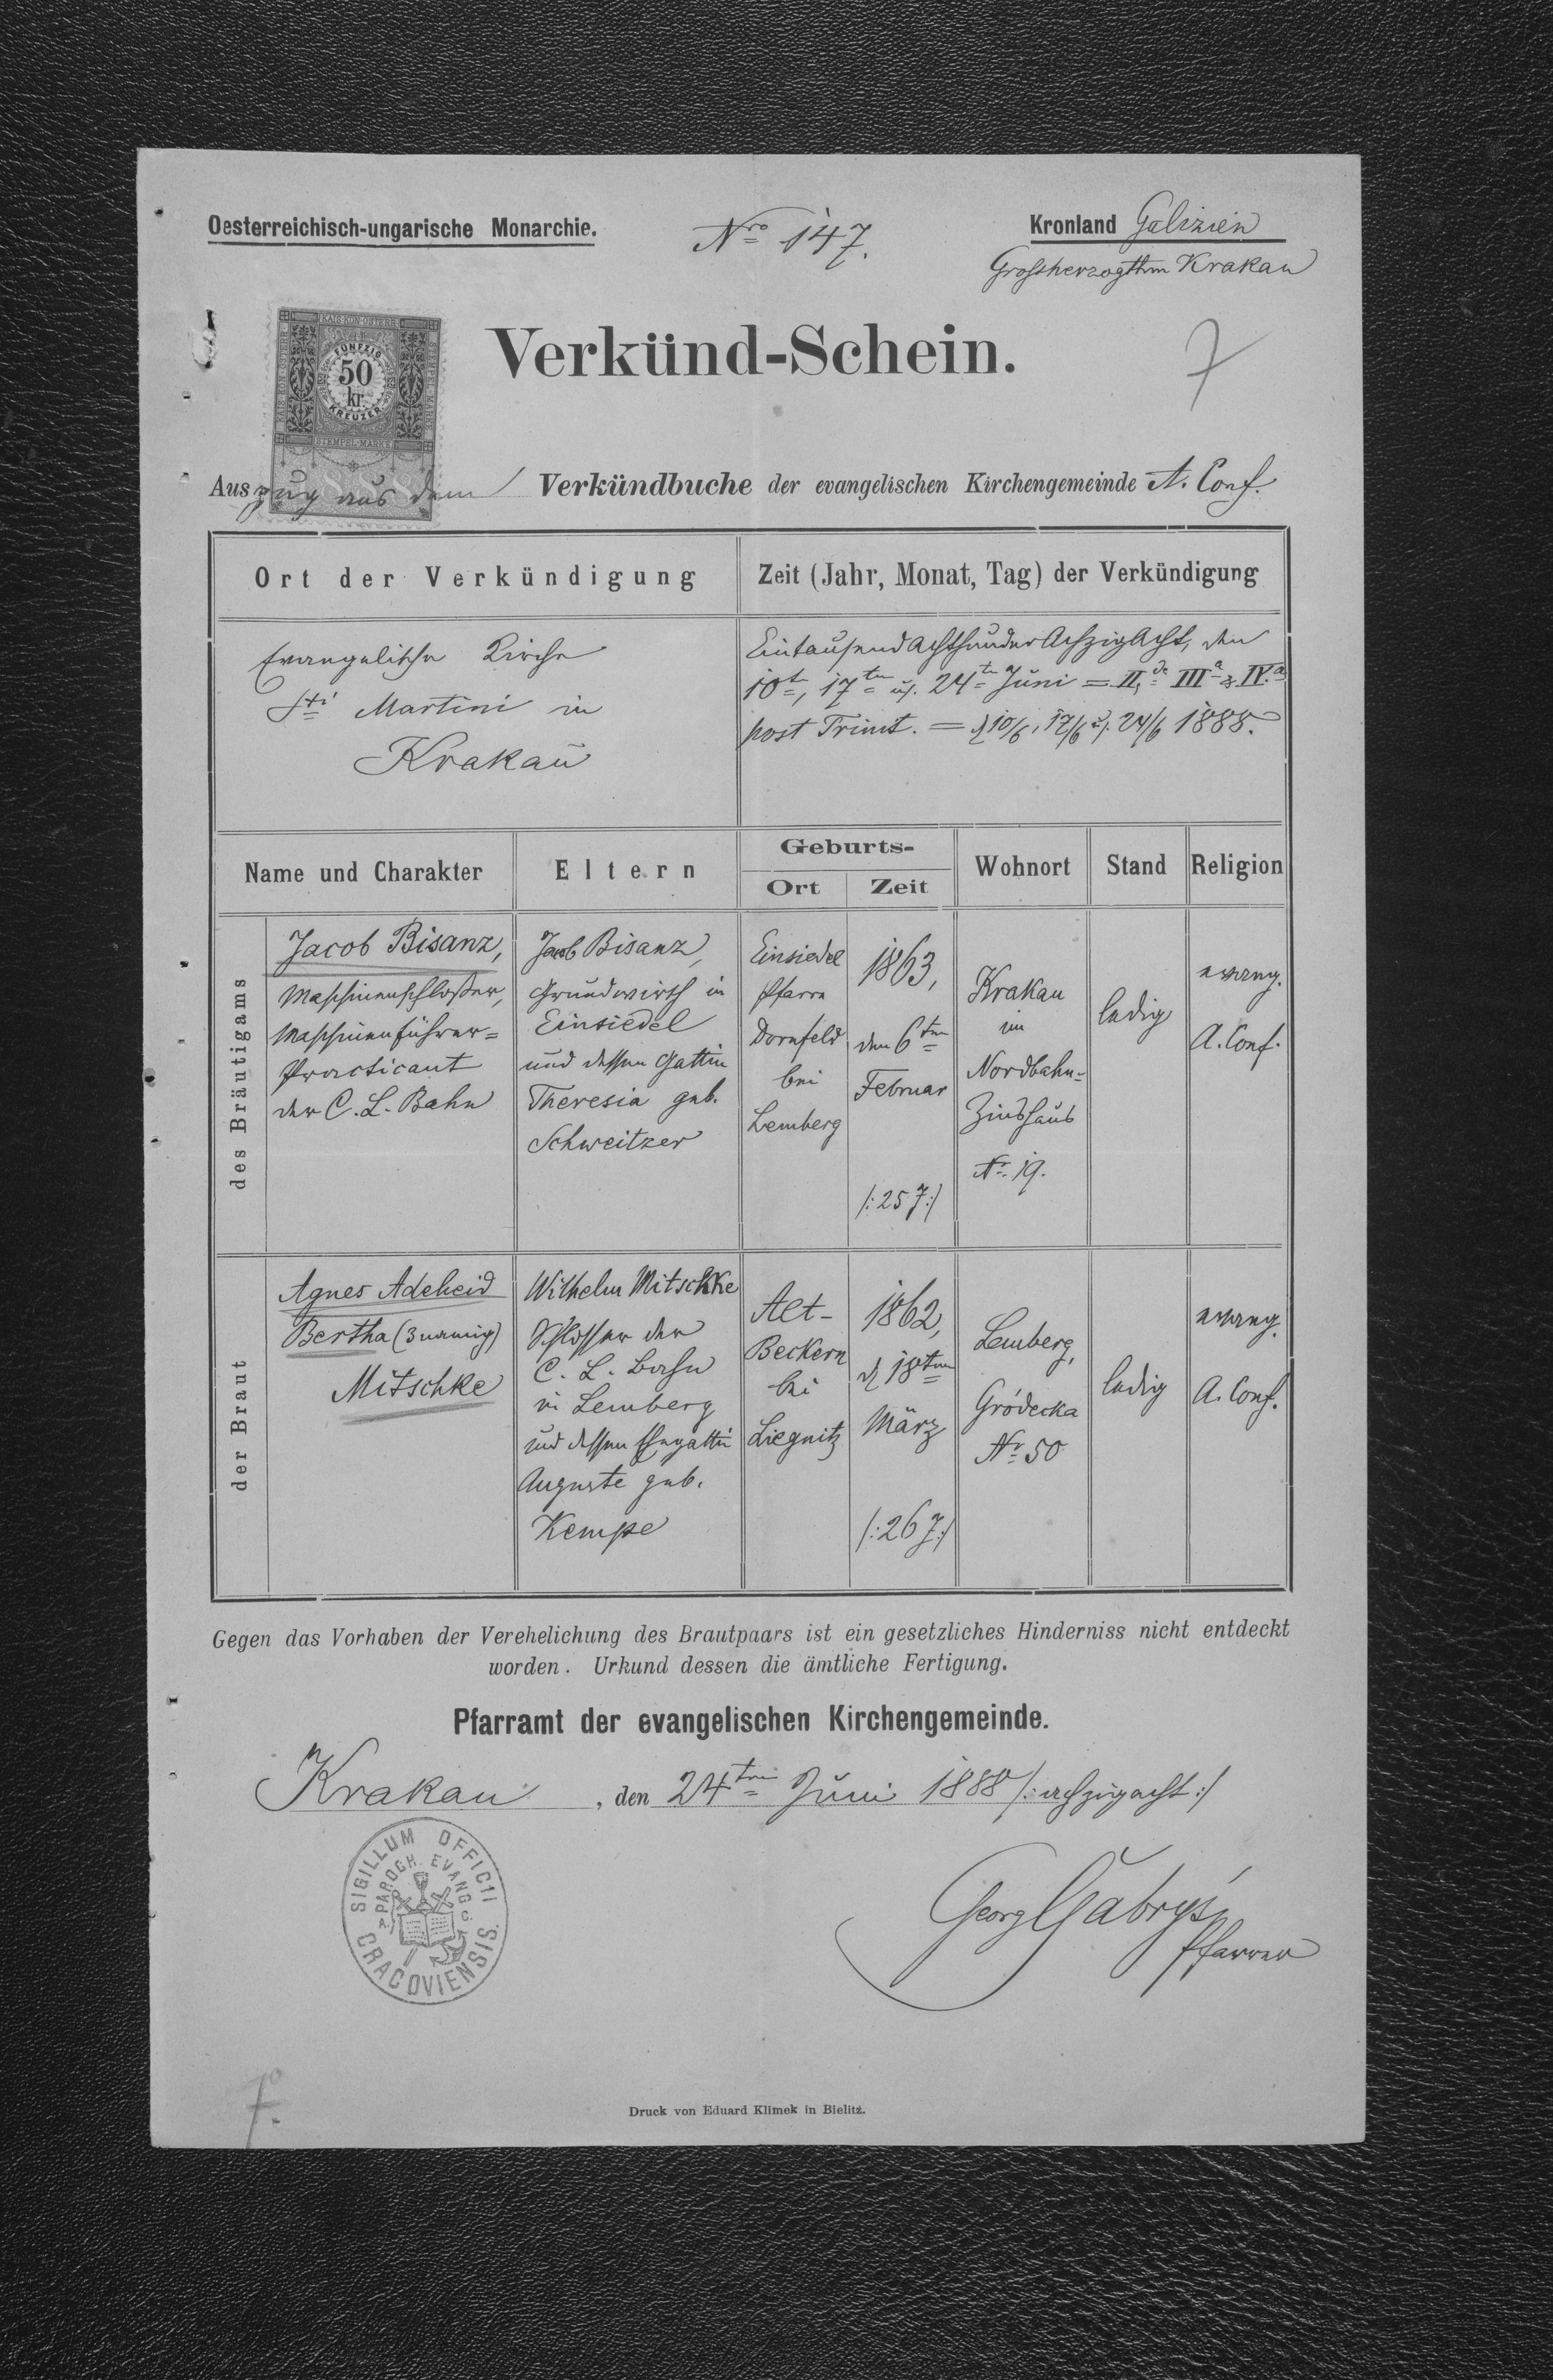 Oesterreichisch-ungarische Monarchie.
Nro 147.
Kronland Galizien
Grossherzogthm Krakau
KAIS. KÖN. ÖSTERR.
FÜNFZIG
50
kr.
KREUZER
STEMPEL-MARKE
Verkünd-Schein.
7
Auszug aus dem Verkündbuche der evangelischen Kirchengemeinde A. Conf.
Ort der Verkündigung
Zeit (Jahr, Monat, Tag) der Verkündigung
Evangelische Kirche
Sti Martini in
Krakau
Eintausend achthundert Achzigacht, den
10t, 17ten u. 24ten Juni = II,de IIIa & IV.a
post Trinit. = d 10/6, 17/6 u. 24/6 1888.
Name und Charakter
Eltern
Geburts-
Ort
Zeit
Wohnort
Stand
Religion
des Bräutigams
Jacob Bisanz,
Maschinenschlosser,
Maschinenführer=
Practicant
der C. L. Bahn
Jacob Bisanz,
Grundwirth in
Einsiedel
und dessen Gattin
Theresia geb.
Schweitzer
Einsiedel
Pfarre
Dornfeld
bei
Lemberg
1863,
den 6ten
Februar
/:25 J:/
Krakau
im
Nordbahn=
Zinshaus
Nr. 19.
ledig
evang.
A. Conf.
der Braut
Agnes Adelheid
Bertha (3namig)
Mitschke
Wilhelm Mitschke
Schlosser der
C. L. Bahn
in Lemberg
und dessen Ehegattin
Auguste geb.
Kempe
Alt-
Beckern
bei
Liegnitz
1862,
d 18ten
März
/:26 J:/
Lemberg,
Gródecka
Nr 50
ledig
evang.
A. Conf.
Gegen das Vorhaben der Verehelichung des Brautpaars ist ein gesetzliches Hinderniss nicht entdeckt
worden. Urkund dessen die ämtliche Fertigung.
Pfarramt der evangelischen Kirchengemeinde.
Krakau, den 24ten Juni 1888 /:achzigacht:/
SIGILLUM OFFICII
PAROCH. EVANG.
CRACOVIENSIS.
Georg Gabryś,
Pfarrer
7.
Druck von Eduard Klimek in Bielitz.